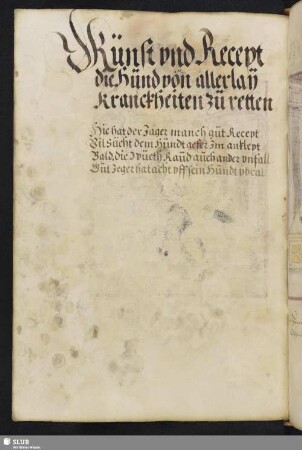 Künst vnd Recept
die Hünd von allerlaÿ
Kranckheiten zü retten
Hie hat der Jäger manch güt Recept
Vil sücht dem Hündt offt Im anklept
Bald die Wüeth Raüd aüch ander vnfall
Güt Jeger hat acht vff sein Hündt vberal
SLUB
Wir führen Wissen.